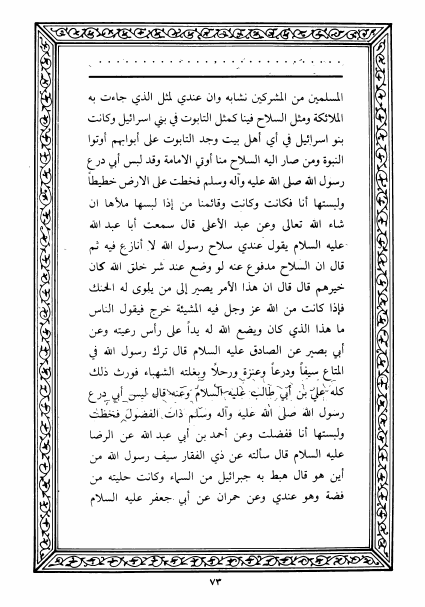 المسلمين من المشركين نشابه وان عندي لمثل الذي جاءت به
الملائكة ومثل السلاح فينا كمثل التابوت في بني اسرائيل وكانت
بنو اسرائيل في أي أهل بيت وجد التابوت على أبوابهم أوتوا
النبوة ومن صار اليه السلاح منا أوتي الامامة وقد لبس أبي درع
رسول الله صلى الله عليه وآله وسلم فخطت على الارض خطيطاً
ولبستها أنا فكانت وكانت وقائمنا من إذا لبسها ملأها ان
شاء الله تعالى وعن عبد الأعلى قال سمعت أبا عبد الله
عليه السلام يقول عندي سلاح رسول الله لا أنازع فيه ثم
قال ان السلاح مدفوع عنه لو وضع عند شر خلق الله كان
خيرهم قال قال ان هذا الأمر يصير إلى من يلوى له الحنك
فإذا كانت من الله عز وجل فيه المشيئة خرج فيقول الناس
ما هذا الذي كان ويضع الله له يداً على رأس رعيته وعن
أبي بصير عن الصادق عليه السلام قال ترك رسول الله في
المتاع سيفاً ودرعاً وعنزة ورحلاً وبغلته الشهباء فورث ذلك
كله علي بن أبي طالب عليه السلام وعنه قال لبس أبي درع
رسول الله صلى الله عليه وآله وسلم ذات الفضول فخطت
ولبستها أنا ففضلت وعن أحمد بن أبي عبد الله عن الرضا
عليه السلام قال سألته عن ذي الفقار سيف رسول الله من
أين هو قال هبط به جبرائيل من السماء وكانت حليته من
فضة وهو عندي وعن حمران عن أبي جعفر عليه السلام
٧٣